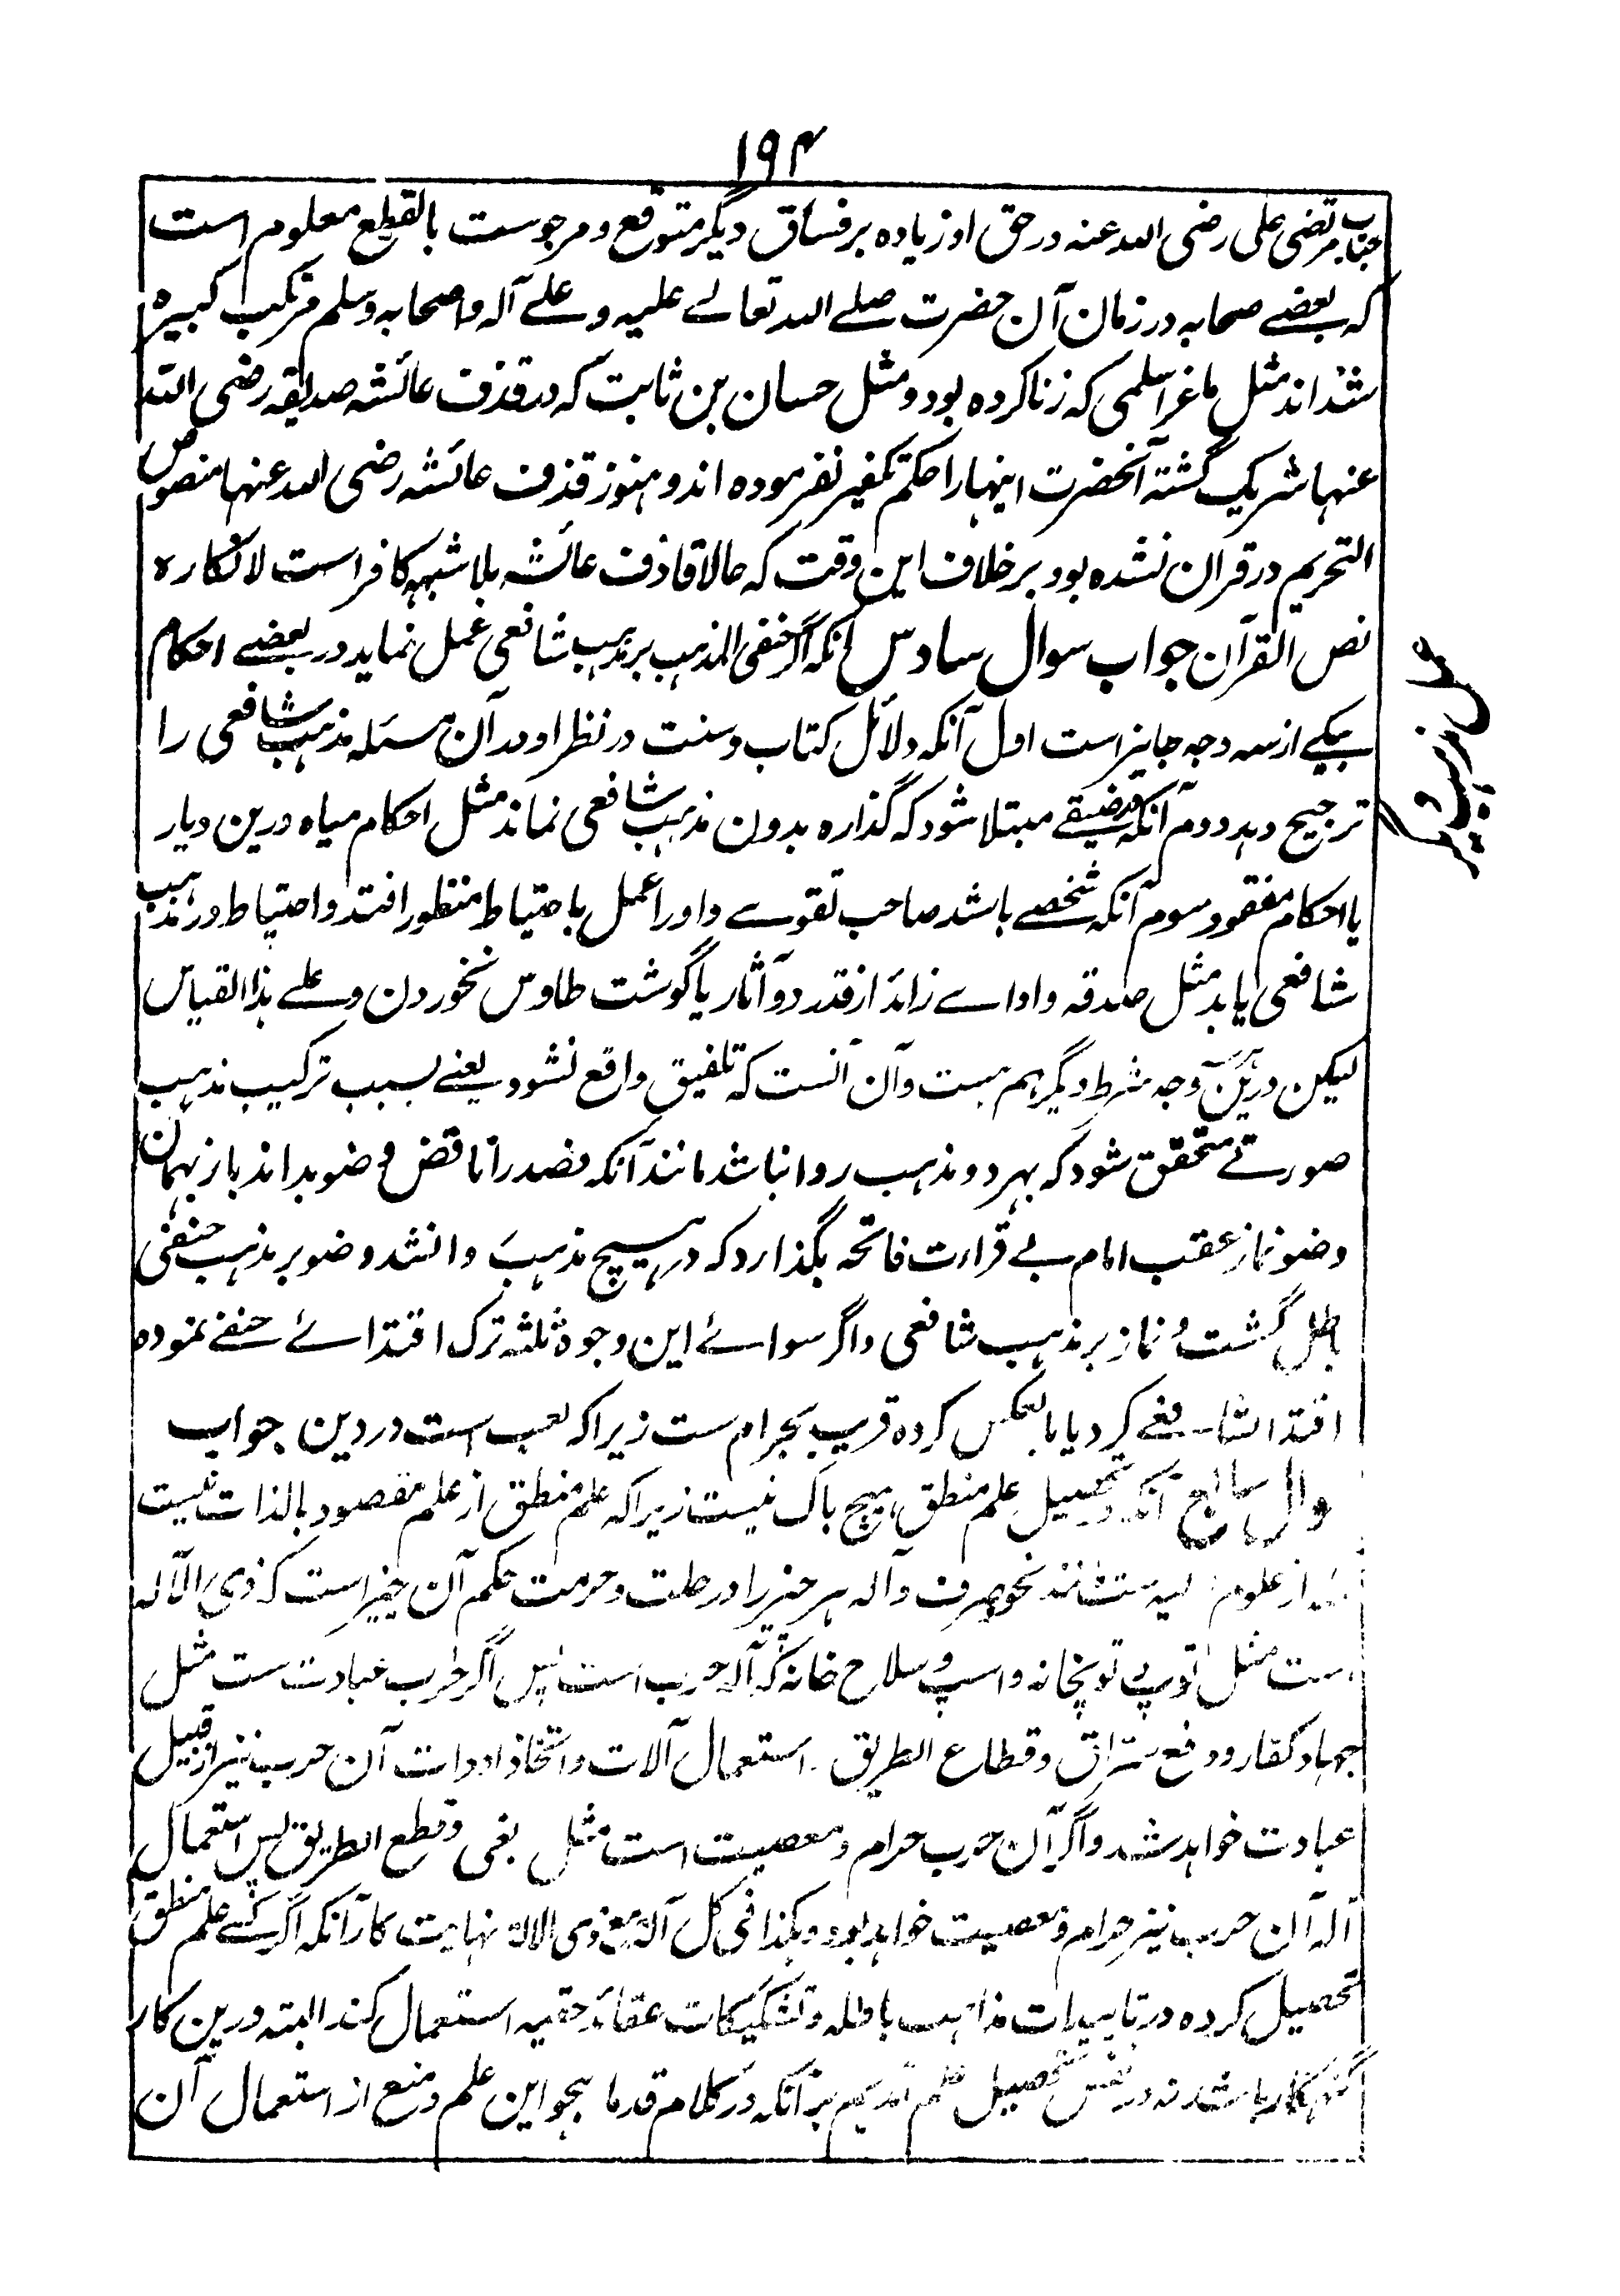 ۱۹۴
جناب مرتضی علی رضی الله عنه در حق او زیاده بر فساق دیگر متوقع و مرجوست بالقطع معلوم است
که بعضے صحابه در زمان آن حضرت صلے الله تعالے علیه و علے آله و اصحابه و سلم مرتکب کبیره
شده اند مثل ماعز اسلمی که زنا کرده بود و مثل حسان بن ثابت که در قذف عائشه صدیقه رضی الله
عنها شریک گشته آنحضرت اینها را حکم تکفیر نفرموده اند و هنوز قذف عائشه رضی الله عنها منصوص
التحریم در قران نشده بود بر خلاف این وقت که حالا قاذف عائشه بلا شبهه کافر است لانکاره
نص القرآن جواب سوال سادس آنکه اگر حنفی المذهب بر مذهب شافعی عمل نماید در بعضے احکام
بیکے از سه وجه جایز است اول آنکه دلائل کتاب و سنت در نظر او در آن مسئله مذهب شافعی را
ترجیح دهد دوم آنکه در ضیقے مبتلا شود که گذاره بدون مذهب شافعی نماند مثل احکام میاه درین دیار
یا احکام مفقود سوم آنکه شخصے باشد صاحب تقوے و او را عمل باحتیاط منظور افتد و احتیاط در مذهب
شافعی یابد مثل صدقه و اداے زائد از قدر دو آثار یا گوشت طاوس نخوردن و علے هذا القیاس
لیکن درین وجه شرط دیگر هم هست و آن آنست که تلفیق واقع نشود یعنے بسبب ترکیب مذهب
صورتے متحقق شود که بهر دو مذهب روا نباشد مانند آنکه فصد را ناقض وضو نداند باز بهمان
وضو نماز عقب امام بے قراءت فاتحه بگذارد که در هیچ مذهب روا نشد وضو بر مذهب حنفی
باطل گشت و نماز بر مذهب شافعی و اگر سواے این وجوه ثلثه ترک اقتداے حنفے نموده
اقتدا شافعے کرد یا بالعکس کرده قریب بحرام ست زیرا که لعب است در دین جواب
سوال سابع آنکه در تحصیل علم منطق هیچ باک نیست زیرا که علم منطق از علم مقصود بالذات نیست
از علوم آلیه نحو و صرف و آله هر چیز را در حلت و حرمت حکم آن چیز است که ذی الآله
ست مثل توپ توپخانه و اسپ و سلاح خانه که آله حرب است پس اگر حرب عبادت ست مثل
جهاد کفار و دفع سراق و قطاع الطریق استعمال آلات و اتخاذ ادوات آن حرب نیز از قبیل
عبادت خواهد شد و اگر آن حرب حرام و معصیت است مثل بغی و قطع الطریق پس استعمال
آله آن حرب نیز حرام و معصیت خواهد بود و هکذا فی کل آلة مع ذی الالة نهایت کار آنکه اگر کسے علم منطق
تحصیل کرده در تاییدات مذاهب باطله و تشکیکات عقائد حقیه استعمال کند البته درین کار
گنهگار باشد نه در نفس تحصیل علم آمدیم بر آنکه در کلام قدما هجو این علم و منع از استعمال آن